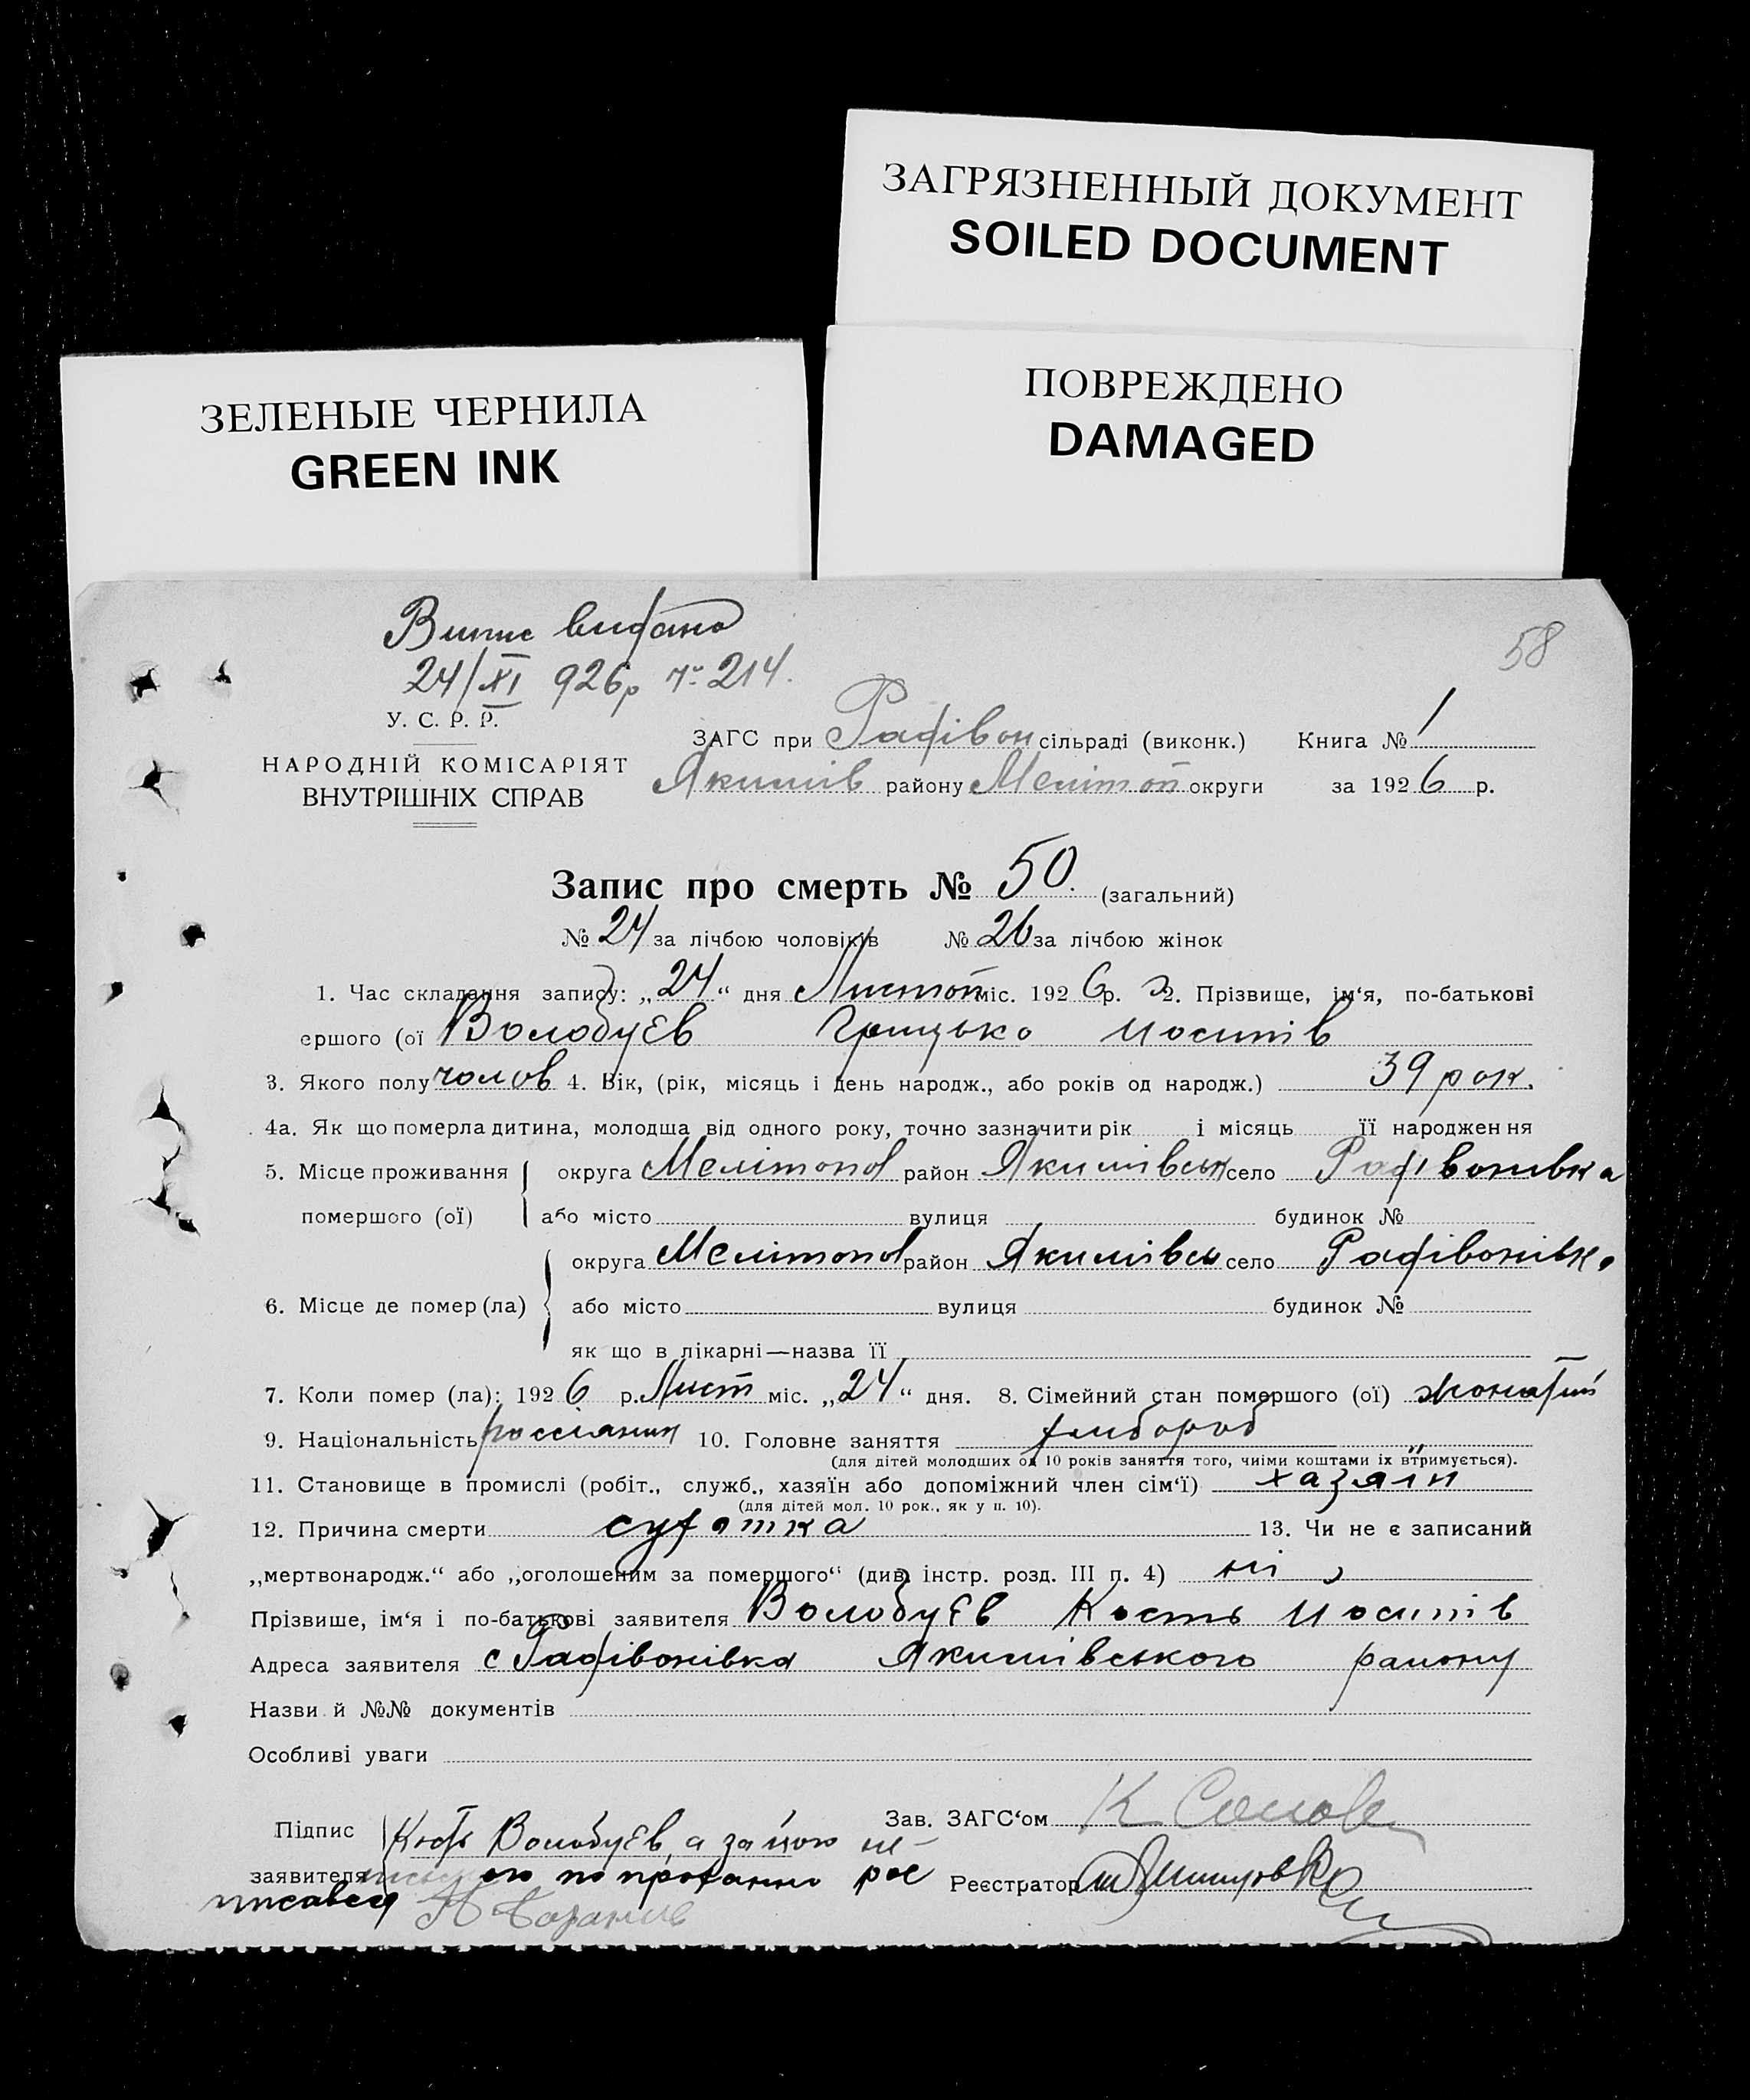 ЗАГРЯЗНЕННЫЙ ДОКУМЕНТ
SOILED DOCUMENT
ЗЕЛЕНЫЕ ЧЕРНИЛА
GREEN INK
ПОВРЕЖДЕНО
DAMAGED
Випис видано
24/XI 926р № 214.
58
У. С. Р. Р.
НАРОДНІЙ КОМІСАРІЯТ
ВНУТРІШНІХ СПРАВ
ЗАГС при Радівон сільраді (виконк.) Книга № 1
Якимів району Меліт оп округи за 1926 р.
Запис про смерть № 50. (загальний)
№ 24 за лічбою чоловіків № 26 за лічбою жінок
1. Час складання запису: „24“ дня Листоп міс. 1926 р. 2. Прізвище, ім‘я, по-батькові
ершого (ої Волобуєв Грицько Иосипів
3. Якого полу чолов 4. Вік, (рік, місяць і день народж., або років од народж.) 39 рок.
4а. Як що померла дитина, молодша від одного року, точно зазначити рік і місяць її народження
5. Місце проживання помершого (ої) округа Мелітопол район Якимівськ село Радівонивка
або місто вулиця будинок №
6. Місце де помер (ла) округа Мелітопол район Якимівсь село Радівонівка
або місто вулиця будинок №
як що в лікарні—назва її
7. Коли помер (ла): 1926 р. Лист міс. „24“ дня. 8. Сімейний стан помершого (ої) жонатий
9. Національність россіянин 10. Головне заняття хлибороб
(для дітей молодших од 10 років заняття того, чиїми коштами їх втримується).
11. Становище в промислі (робіт., служб., хазяїн або допоміжний член сім‘ї) хазяїн
(для дітей мол. 10 рок., як у п. 10).
12. Причина смерти сухотка 13. Чи не є записаний
„мертвонародж.“ або „оголошеним за помершого“ (див. інстр. розд. III п. 4) ні
Прізвише, ім‘я і по-батькові заявителя Волобуєв Кость Иосипів
Адреса заявителя с Радівонівка Якимівського району
Назви й №№ документів
Особливі уваги
Підпис заявителя Кость Волобуєв, а за його не
по проханню рос
писався
Зав. ЗАГС‘ом К
Реєстратор